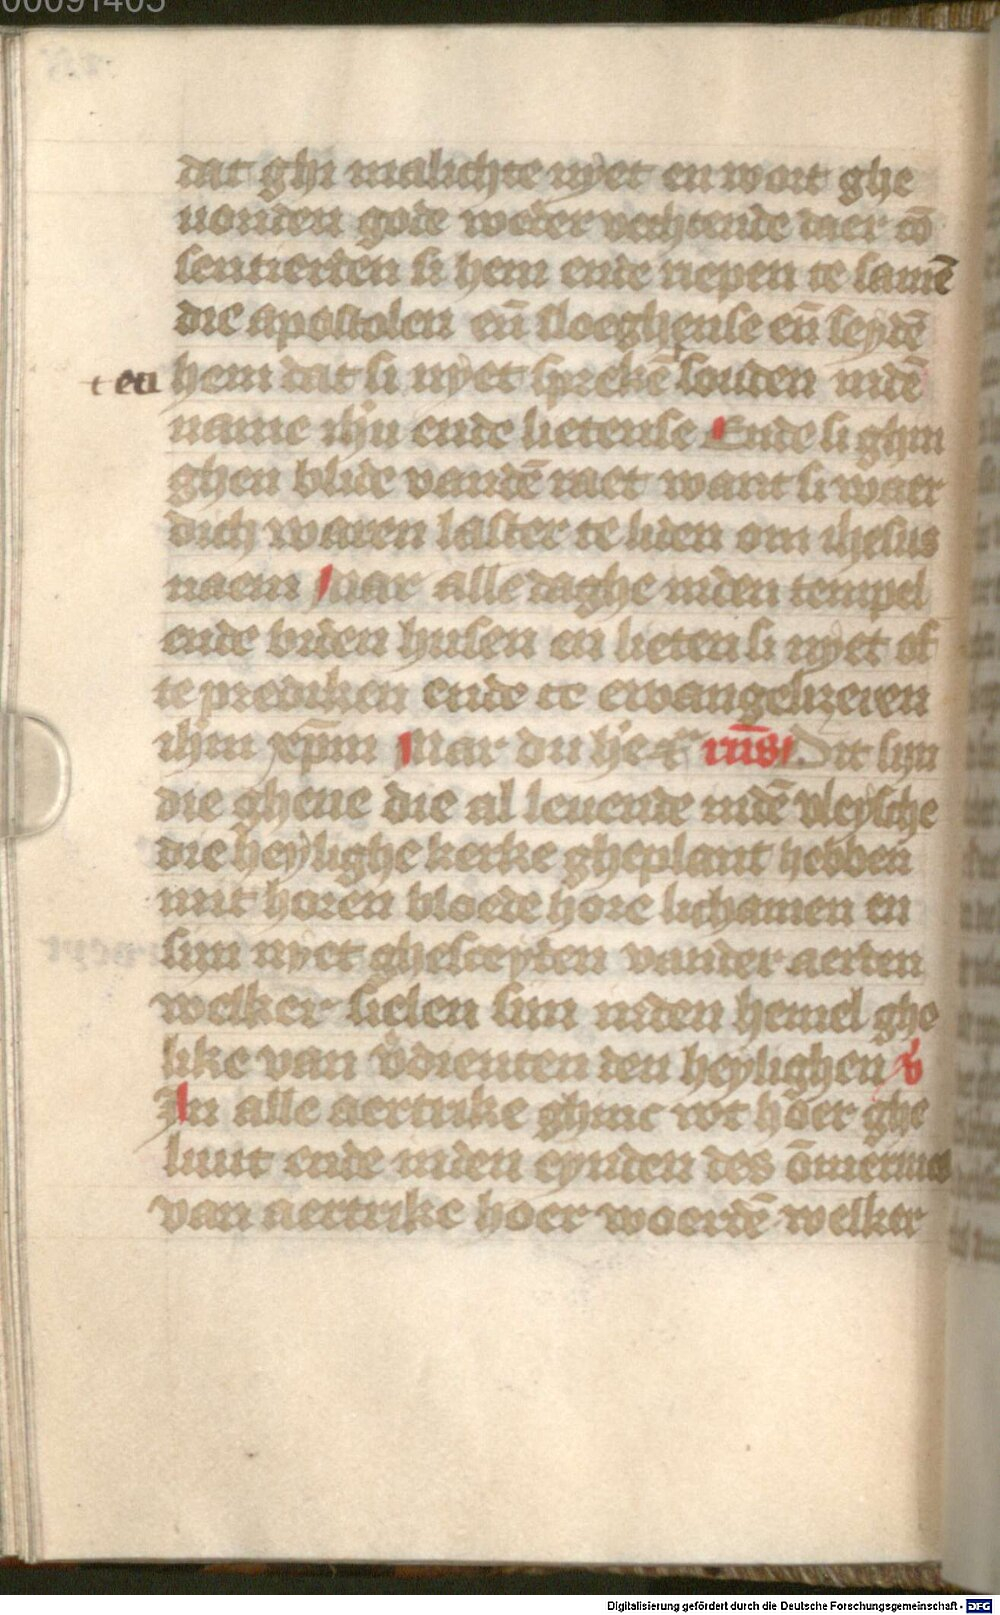 00091405
dat ghi malichte nyet en wort ghe
uonden gode weder vechtende daer cō
sentierden si hem ende riepen te samē
die apostolen eñ sloeghense eñ seydē
ten hem dat si nyet sprekē souden indē
name ihū ende lietense Ende si ghin
ghen blide vandē raet want si waer
dich waren laster te liden om ihesus
naem Mar alle daghe inden tempel
ende biden husen en lieten si nyet of
te prediken ende te ewangelizeren
ihm xp̄m Mar du he Dit sijn
die ghene die al leuende indē vleysche
die heylighe kerke gheplant hebben
mit horen bloede hore lichamen en
sijn nyet ghesceyden vander aerden
welker sielen sijn inden hemel ghe
like van v̄dienten den heylighen v̄
In alle aertrike ghinc wt hoer ghe
luut ende inden eynden des
van aertrike hoer woerdē welker
Digitalisierung gefördert durch die Deutsche Forschungsgemeinschaft - DFG